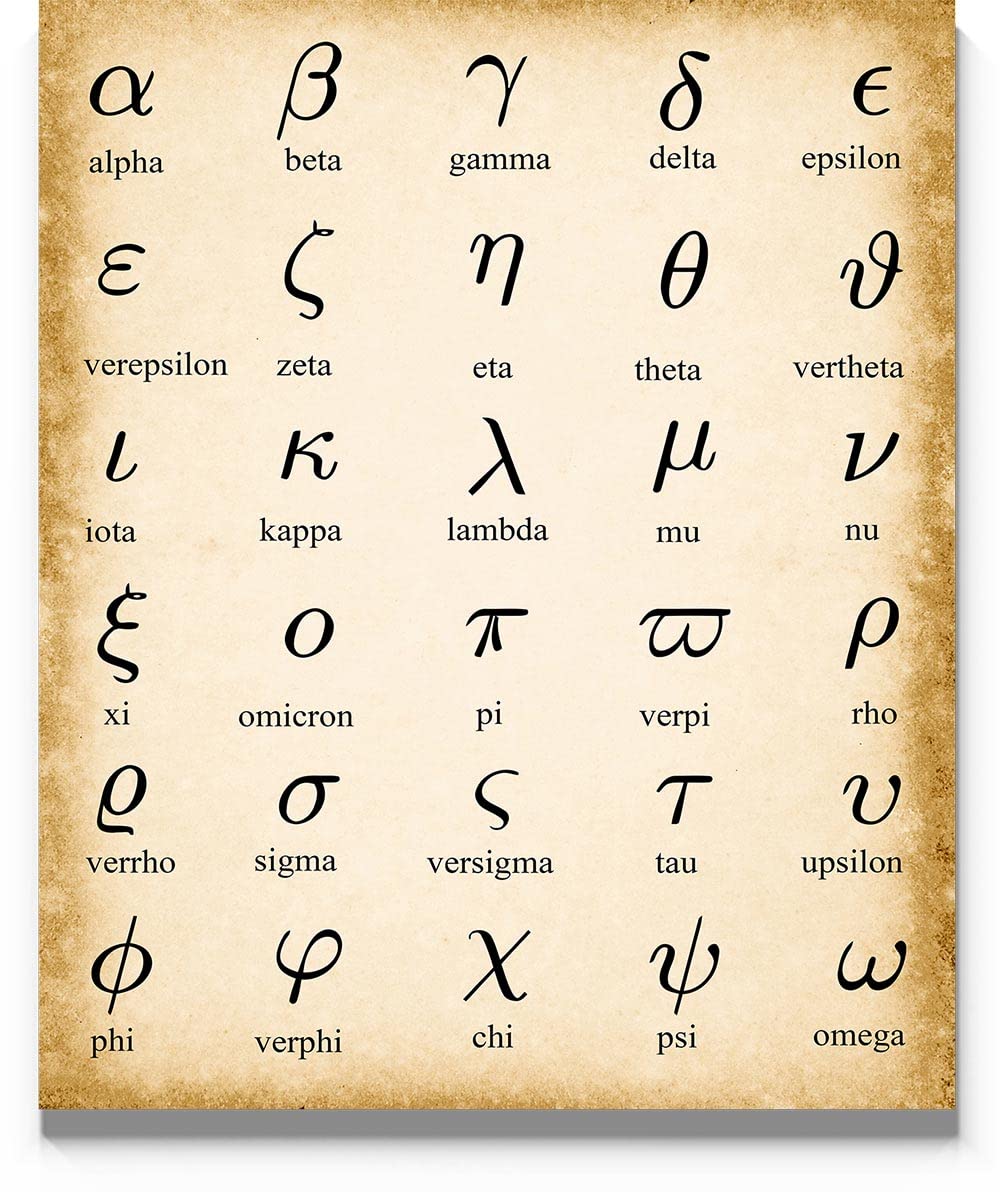 α β γ δ ϵ
alpha beta gamma delta epsilon
ε ζ η θ ϑ
verepsilon zeta eta theta vertheta
ι κ λ μ ν
iota kappa lambda mu nu
ξ ο π ϖ ρ
xi omicron pi verpi rho
ϱ σ ς τ υ
verrho sigma versigma tau upsilon
ϕ φ χ ψ ω
phi verphi chi psi omega